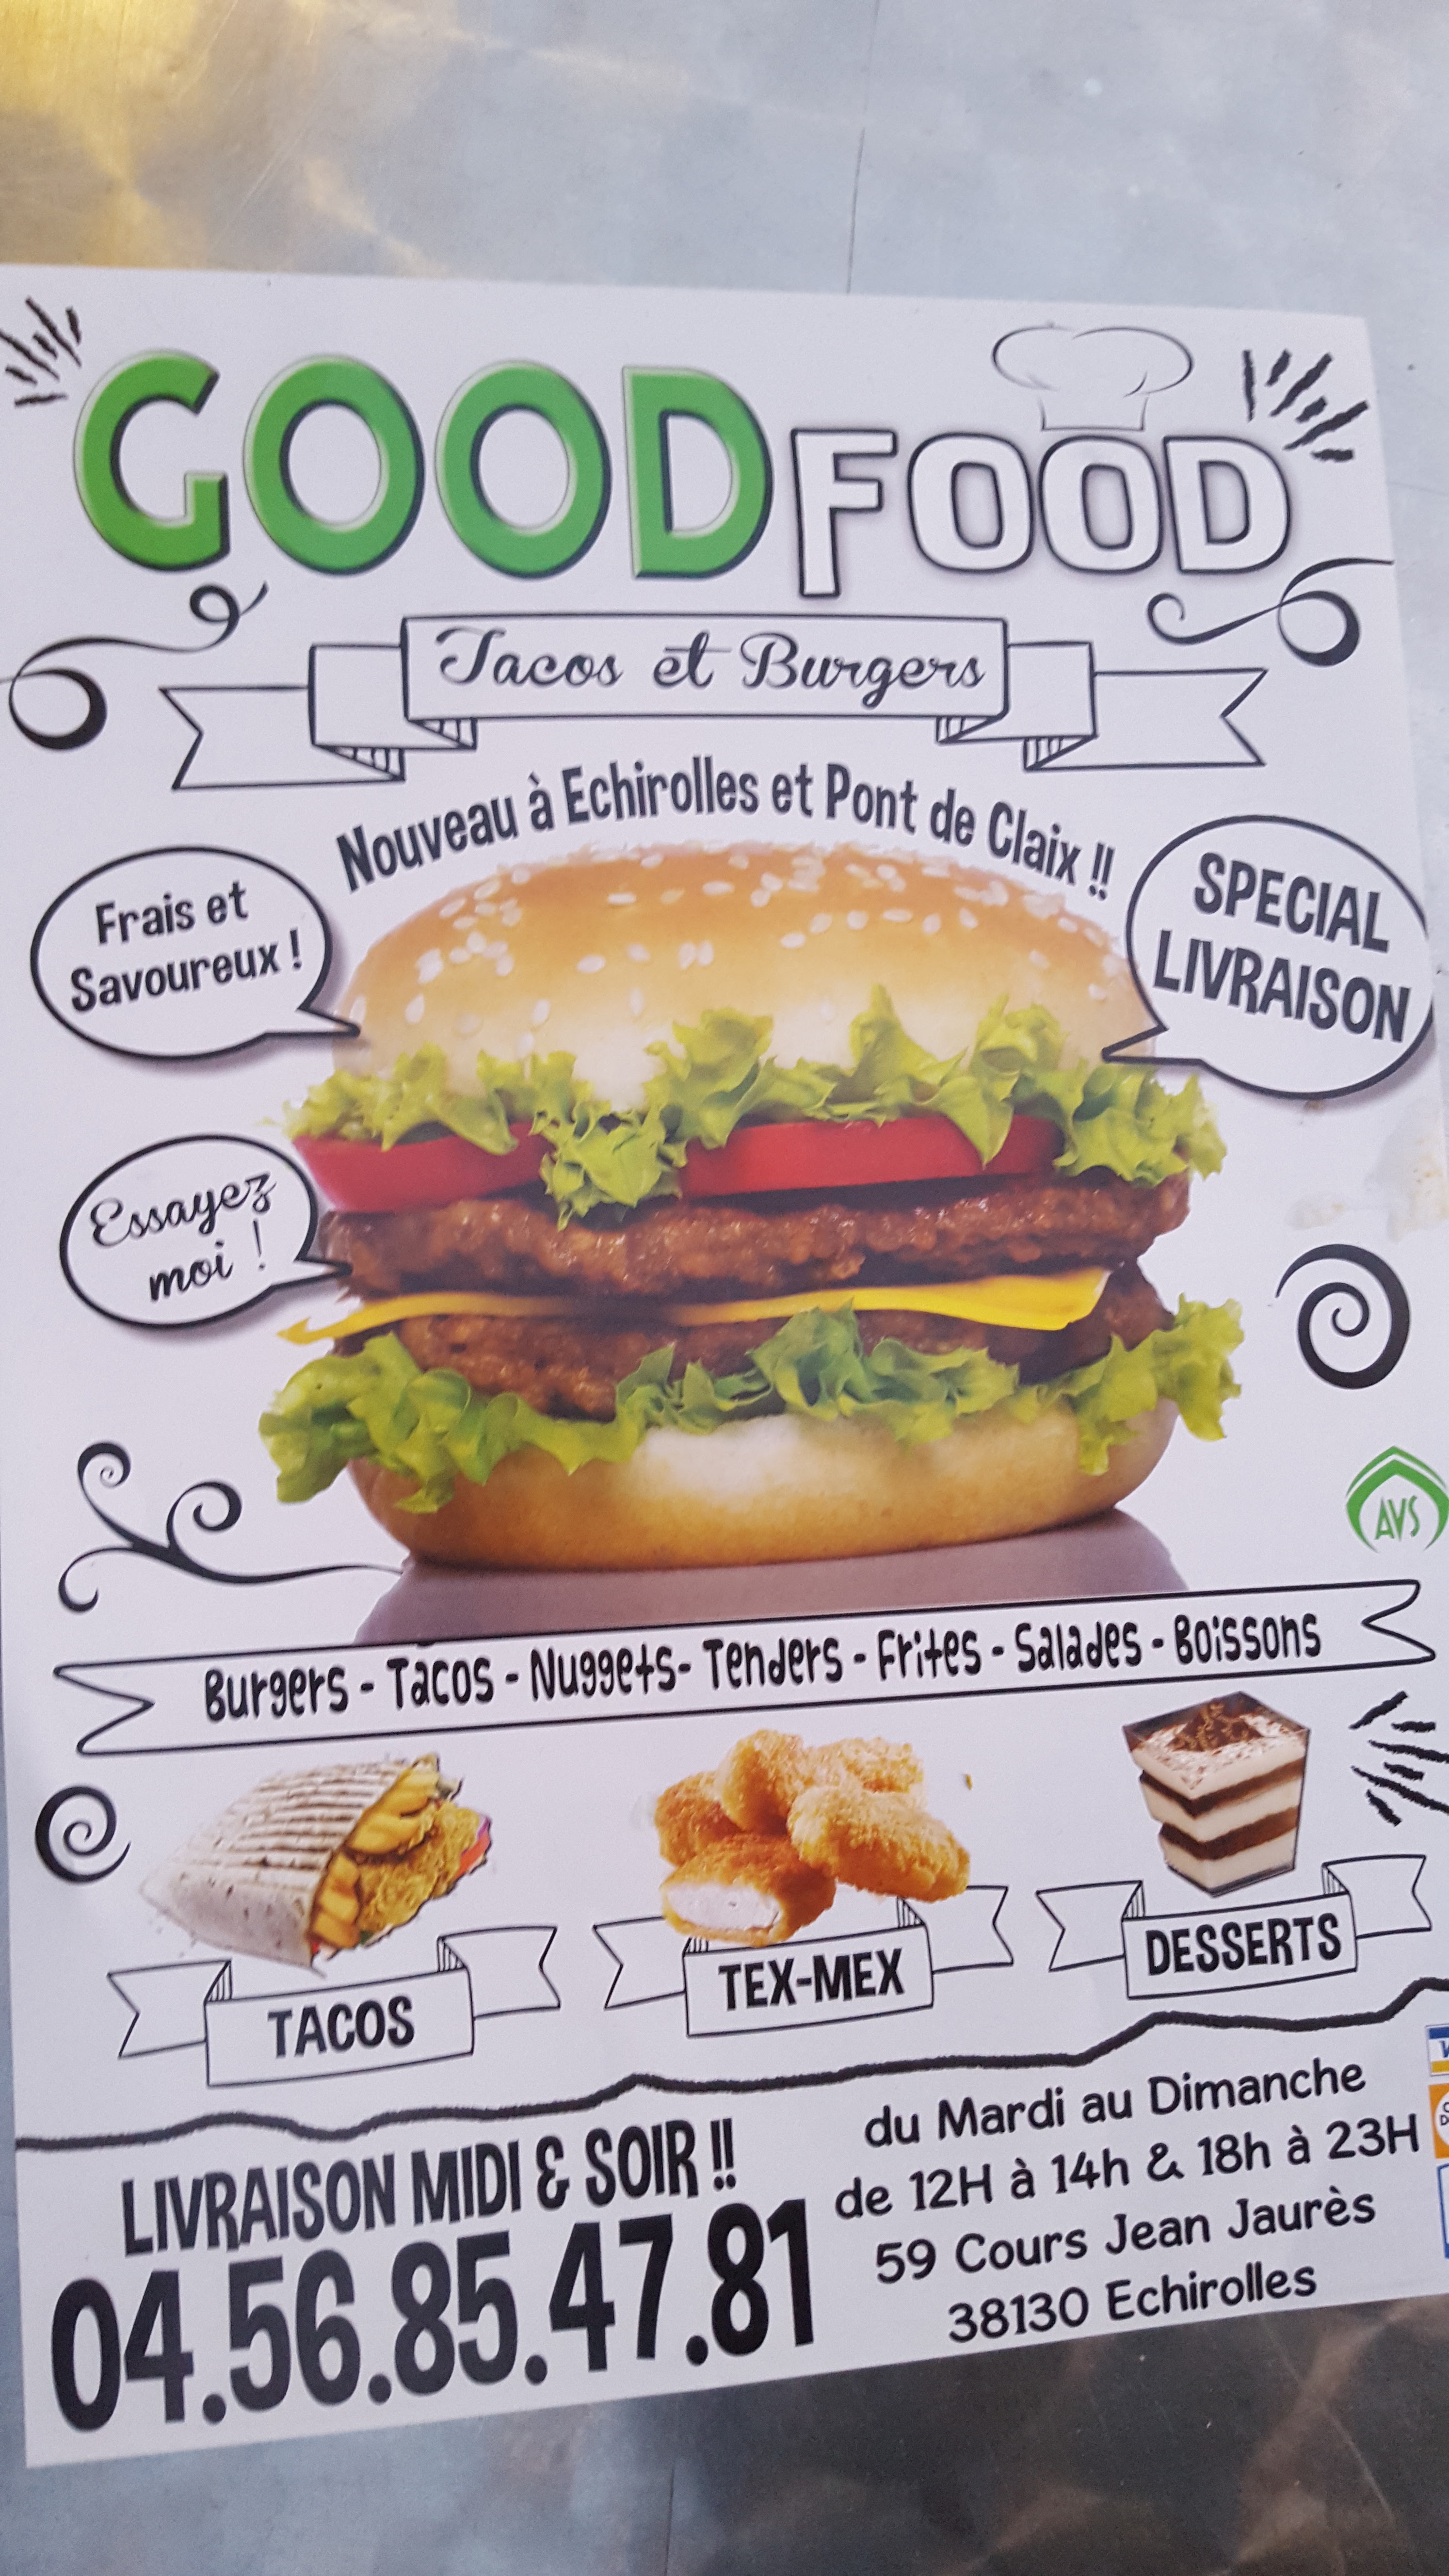 GOOD FOOD
Tacos et Burgers
Nouveau à Echirolles et Pont de Claix !!
Frais et
Savoureux !
SPECIAL
LIVRAISON
Essayez
moi !
AVS
Burgers - Tacos - Nuggets- Tenders - Frites - Salades - Boissons
TACOS
TEX-MEX
DESSERTS
LIVRAISON MIDI & SOIR !!
04.56.85.47.81
du Mardi au Dimanche
de 12H à 14h & 18h à 23H
59 Cours Jean Jaurès
38130 Echirolles